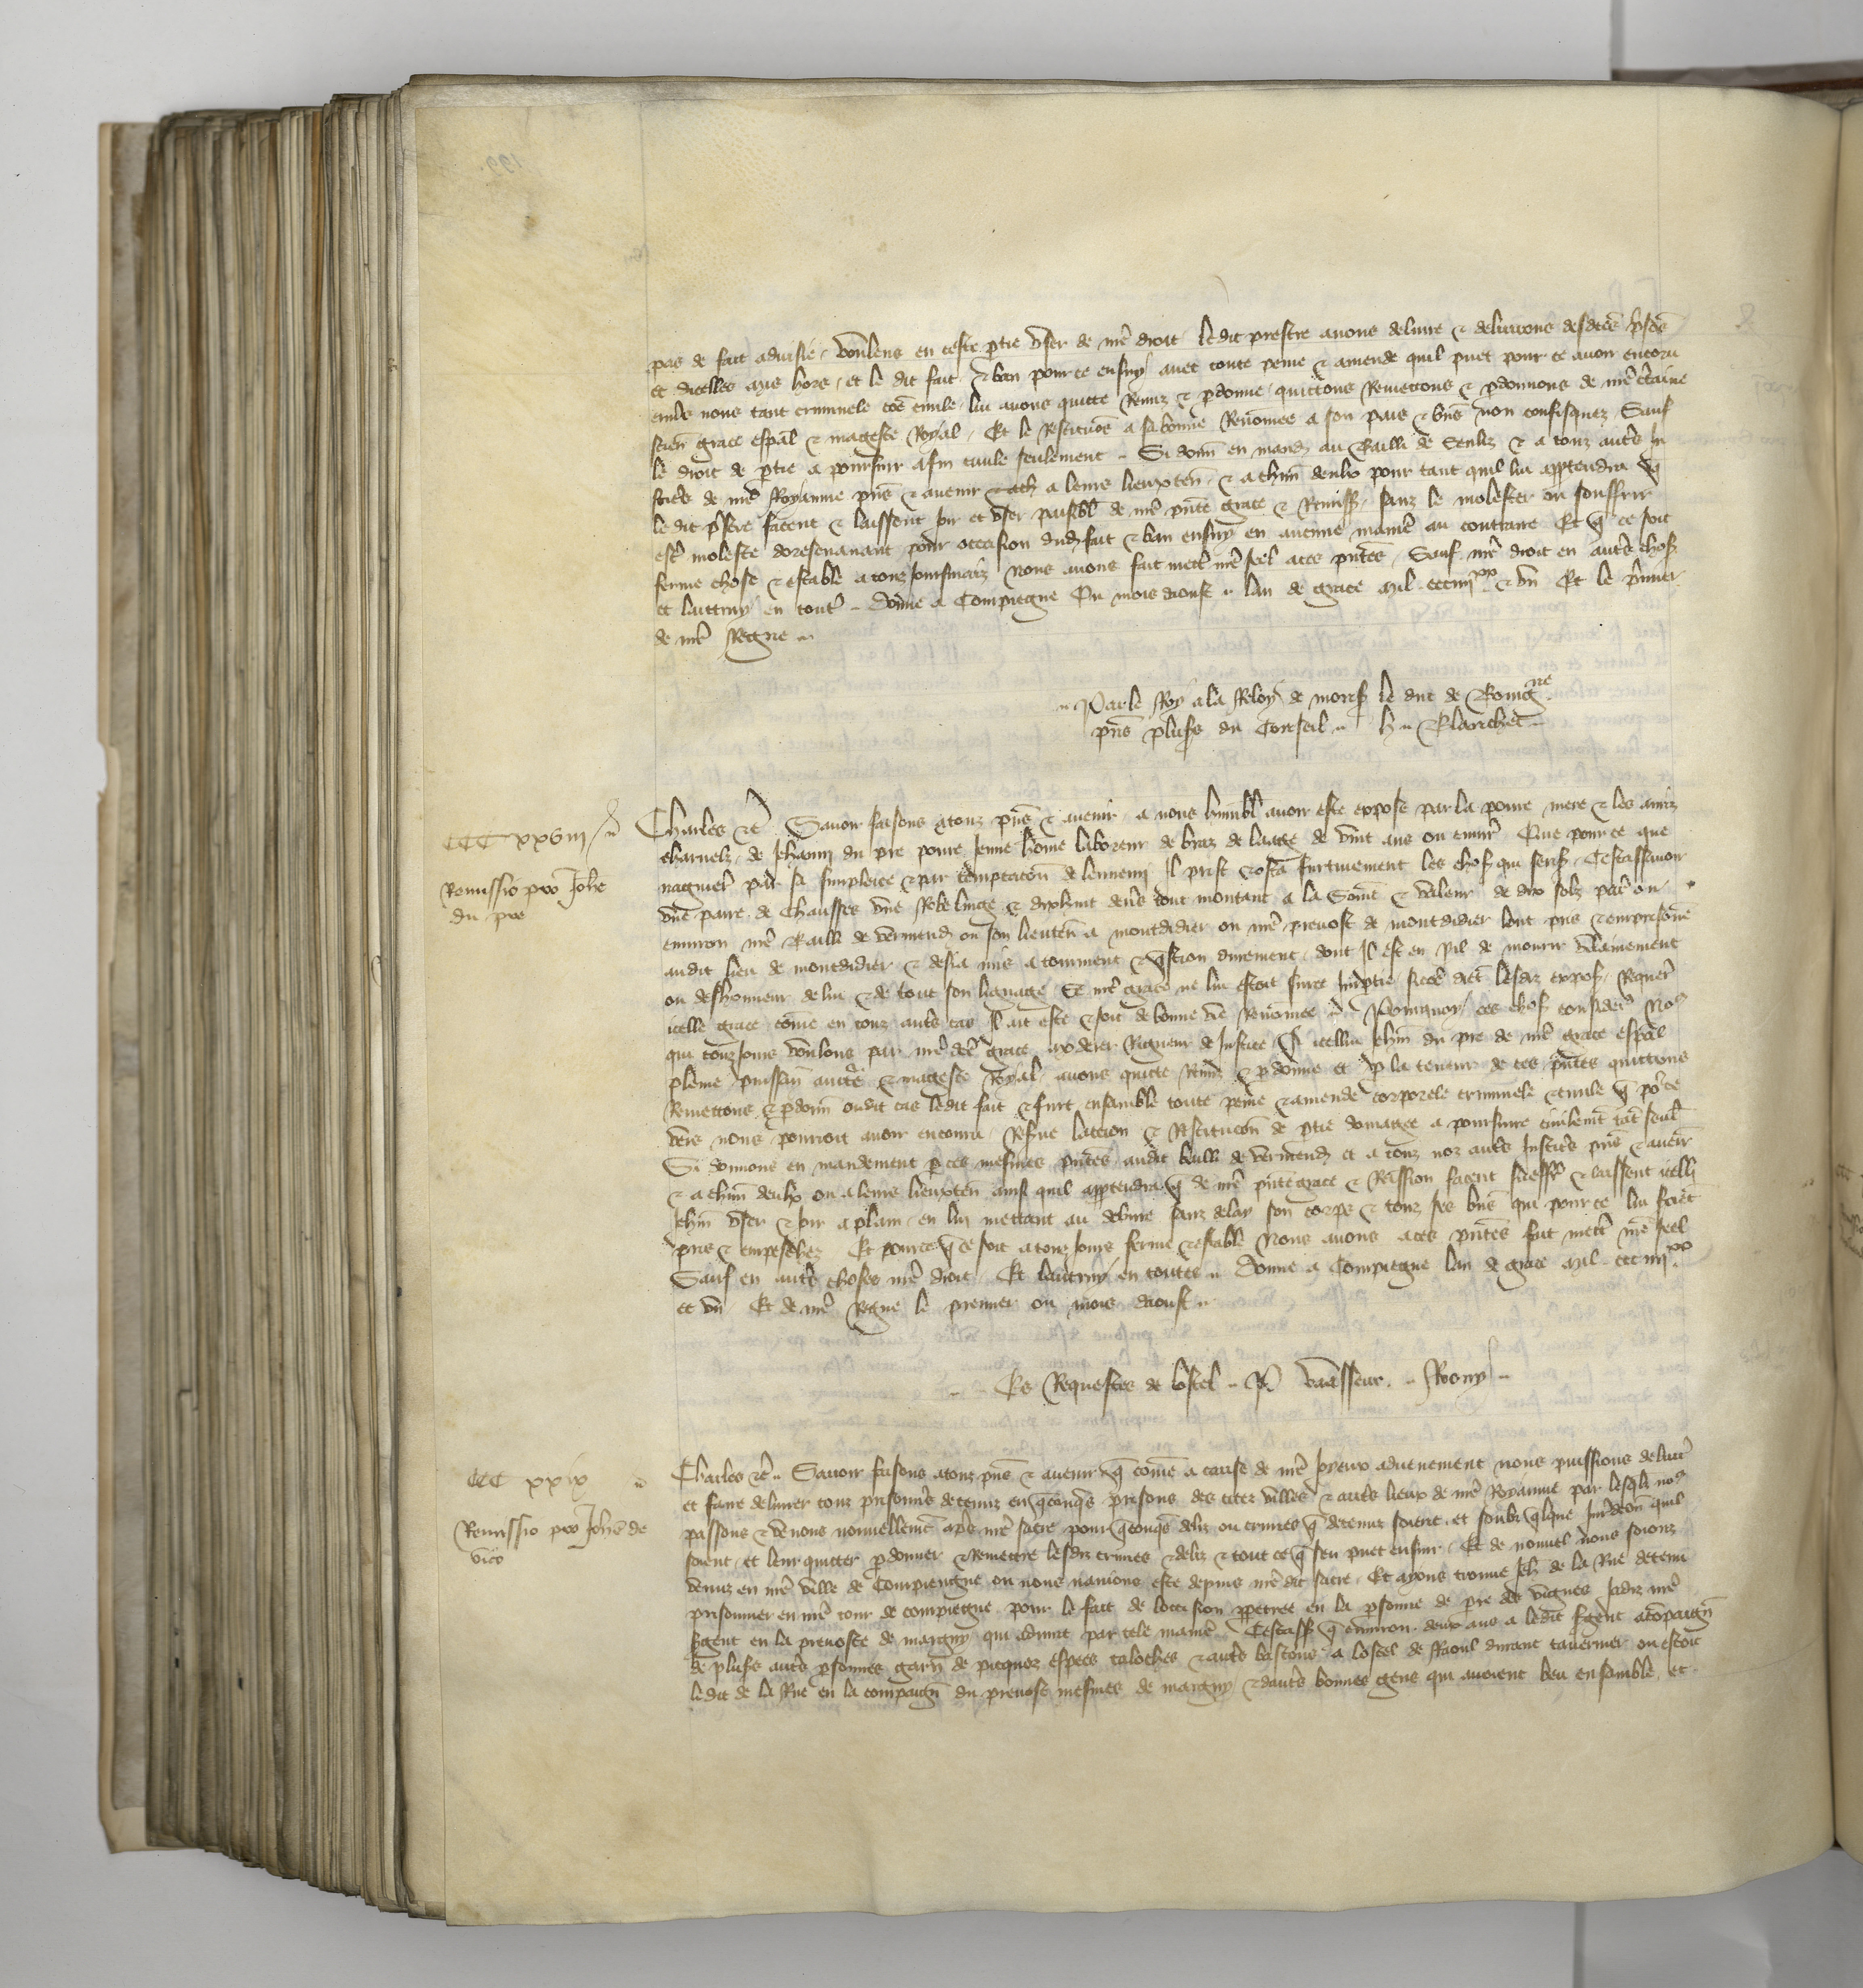 pas de fait advisie, voulens en ceste ptie user de nre droit le dit prestre avons delivre & delivrons desdces prisons
et dicelles mis hors, et le dit fait & ban pour ce ensuy avec toute peine & amende quil puet pour ce avoir encoru
envers nous tant criminele coe civile, lui avons quitte Remis & pdonne, quittons Remettons & pdonnons de nre ctaine
scien grace espal & mageste Royal, Et le Restituons a sa bonne Renomee a son pais & biens non confisquez Sauf
le droit de ptie a poursuir a fin civile seulement .. Si donn en mand au Bailli de Senliz & a touz autes Ju
sticiers de nre Royaume pns & avenir a leurs lieuxten, & a chun deulx pour tant quil lui apptendra q
le dit prestre facent & laissent joir et user paisibl de nre pnte grace & Remiss, sanz le molester ou souffrir
este moleste doresenavant pour occasion dud fait & ban ensuy en aucune maniere au contraire Et q ce soit
ferme chose & estable a touzjoursmaiz Nous avons fait mettre nre seel a ces pntes, Sauf nre droit en autes choses
et lautruy en toutes .. Donne a Compiegne Ou mois daoust .. lan de grace mil ccciiijxx & un Et le pmier
de nre Regne ..
.. Par le Roy a la Relon de mons le duc de Bourgne
pns plusrs du Conseil .. h .. Blanchet ..
CCCxxviii
Remissio pro Johe
du pre
Charles &c Savoir faisons a touz pns & avenir, a nous humbl avoir este expose par la povre mere & les amis
charnelz, de Jehann du pre povre Jeune home laboreur de braz de laage de vint ans ou environ Que pour ce que
naguere par sa simplece & par temptacon de lennemi Il prist & osta furtivement les choses qui sensuient, Cestassavoir
une paire de Chausses une Robe linge & dixhuit deniers tout montant a la Some & valeur de dix solz par ou
environ nre Bailli de Vermend ou son lieuten a montdidier ou nre prevost de montdidier lont pris & emprisone
audit lieu de montdidier & desia mis a tourment & question durement, dont Il est en pil de mourir vilainement
ou deshonneur de lui & de tout son lignage Se nre grace ne lui estoit sur ce Impartie sicoe dient lesdiz exposans, Requer
icelle grace, come en touz autes cas Il ait este & soit de bonne vie & Renomee .. Pourquoy ces choses considerees Nous
qui touzjours voulons par nre dce grace moderer Rigueur de Justice A icellui Jehan du pre de nre grace espal
pleine puissance auctorite & mageste Royal, avons quitte Remis & pdonne et p la teneur de ces pntes quittons
Remettons & pdonn oudit cas ledit fait & furt, ensamble toute peine & amende corporele criminele & civile q por ce
vers nous pourroit avoir encouru, Reserve laction & Restitucon de ptie domagee a poursuire civilemt tat seult
Si donnons en mandement p ces mesmes pntes, audit bailli de Vermend et a touz noz autes Justiciers pns & avenir
& a chun deulx ou a leurs lieuxten ainsi quil apptendra q de nre pnte grace & Remission facent sueffrent & laissent icelli
Jehan user & joir a plain, en lui mettant au delivre sanz delay son corps & touz ses biens qui pour ce lui seroient
pris & empeschez Et pource q ce soit a touzjours ferme & estable Nous avons a ces pntes fait mettre nre seel
Sauf en autes choses nre droit Et lautruy en toutes .. Donne a Compiegne lan de grace mil ccc iiijxx
et un Et de nre Regne le premier ou mois daoust ..
.. Es Requestes de lostel .. P. vavasseur .. Rony ..
CCC xxix
Remissio pro Johe de
vico
Charles &c .. Savoir faisons a touz pns & avenir q come a cause de nre joieux advenement nous puissions delivrer
et faire delivrer touz prisonniers detenuz en quelconqes prisons des citez villes & autes lieux de nre Royaume par lesqlx nous
passons & venons nouvellemt apres nre sacre pour qconqes deliz ou crimes q detenuz soient, et soubz qlque juridicion quil
soient, et leur quitter pdonner & Remettre lesdiz crimes & deliz & tout ce q sen puet ensuir Et de nouvel nous soions
venuz en nre ville de Compiengne ou nous navions este depuis nre dit sacre, Et ayons trouve Jeh de la Rue detenu
prisonnier en nre tour de compiegne pour le fait de loccision ppetree en la psonne de pre des vignes jadiz nre
sgent en la prevoste de margny qui advint par tele maniere Cestass q environ deux ans a ledit sgent acompaign
de plusrs autes psonnes garn de picquez espees taloches & autes bastons a lostel de Raoul durant tavernier ou estoit
ledit de la Rue en la compaign du prevost mesmes de margny & dautes bonnes gens qui avoient beu ensamble, et